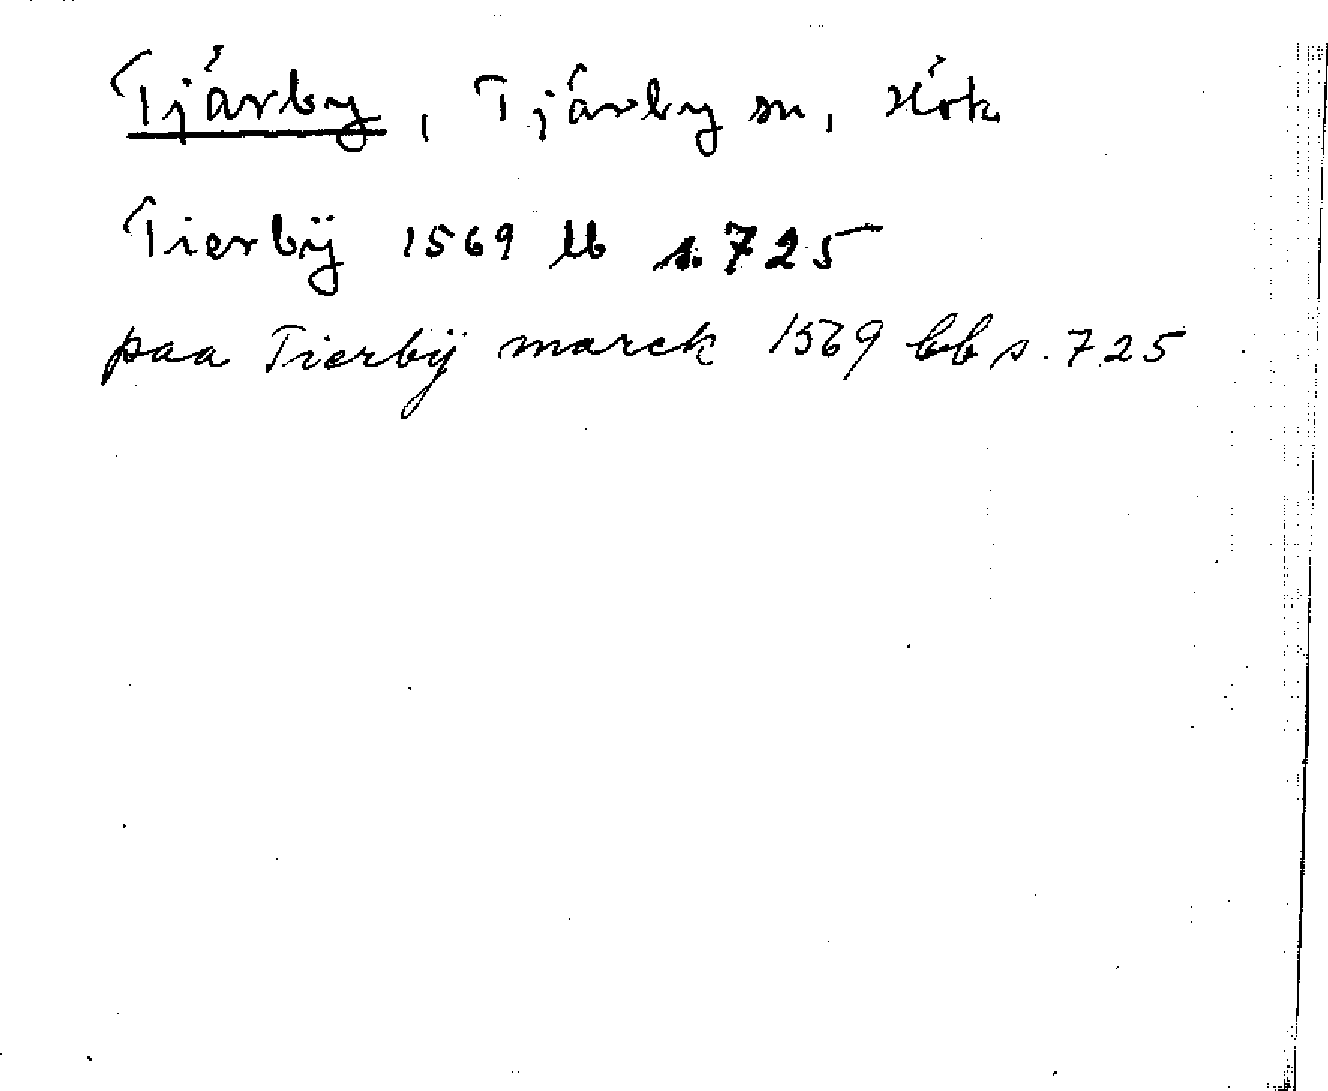 Tjärby, Tjärby sn, Hök
Tierbÿ 1569 lb s. 725
paa Tierbÿ marck 1569 lb s. 725